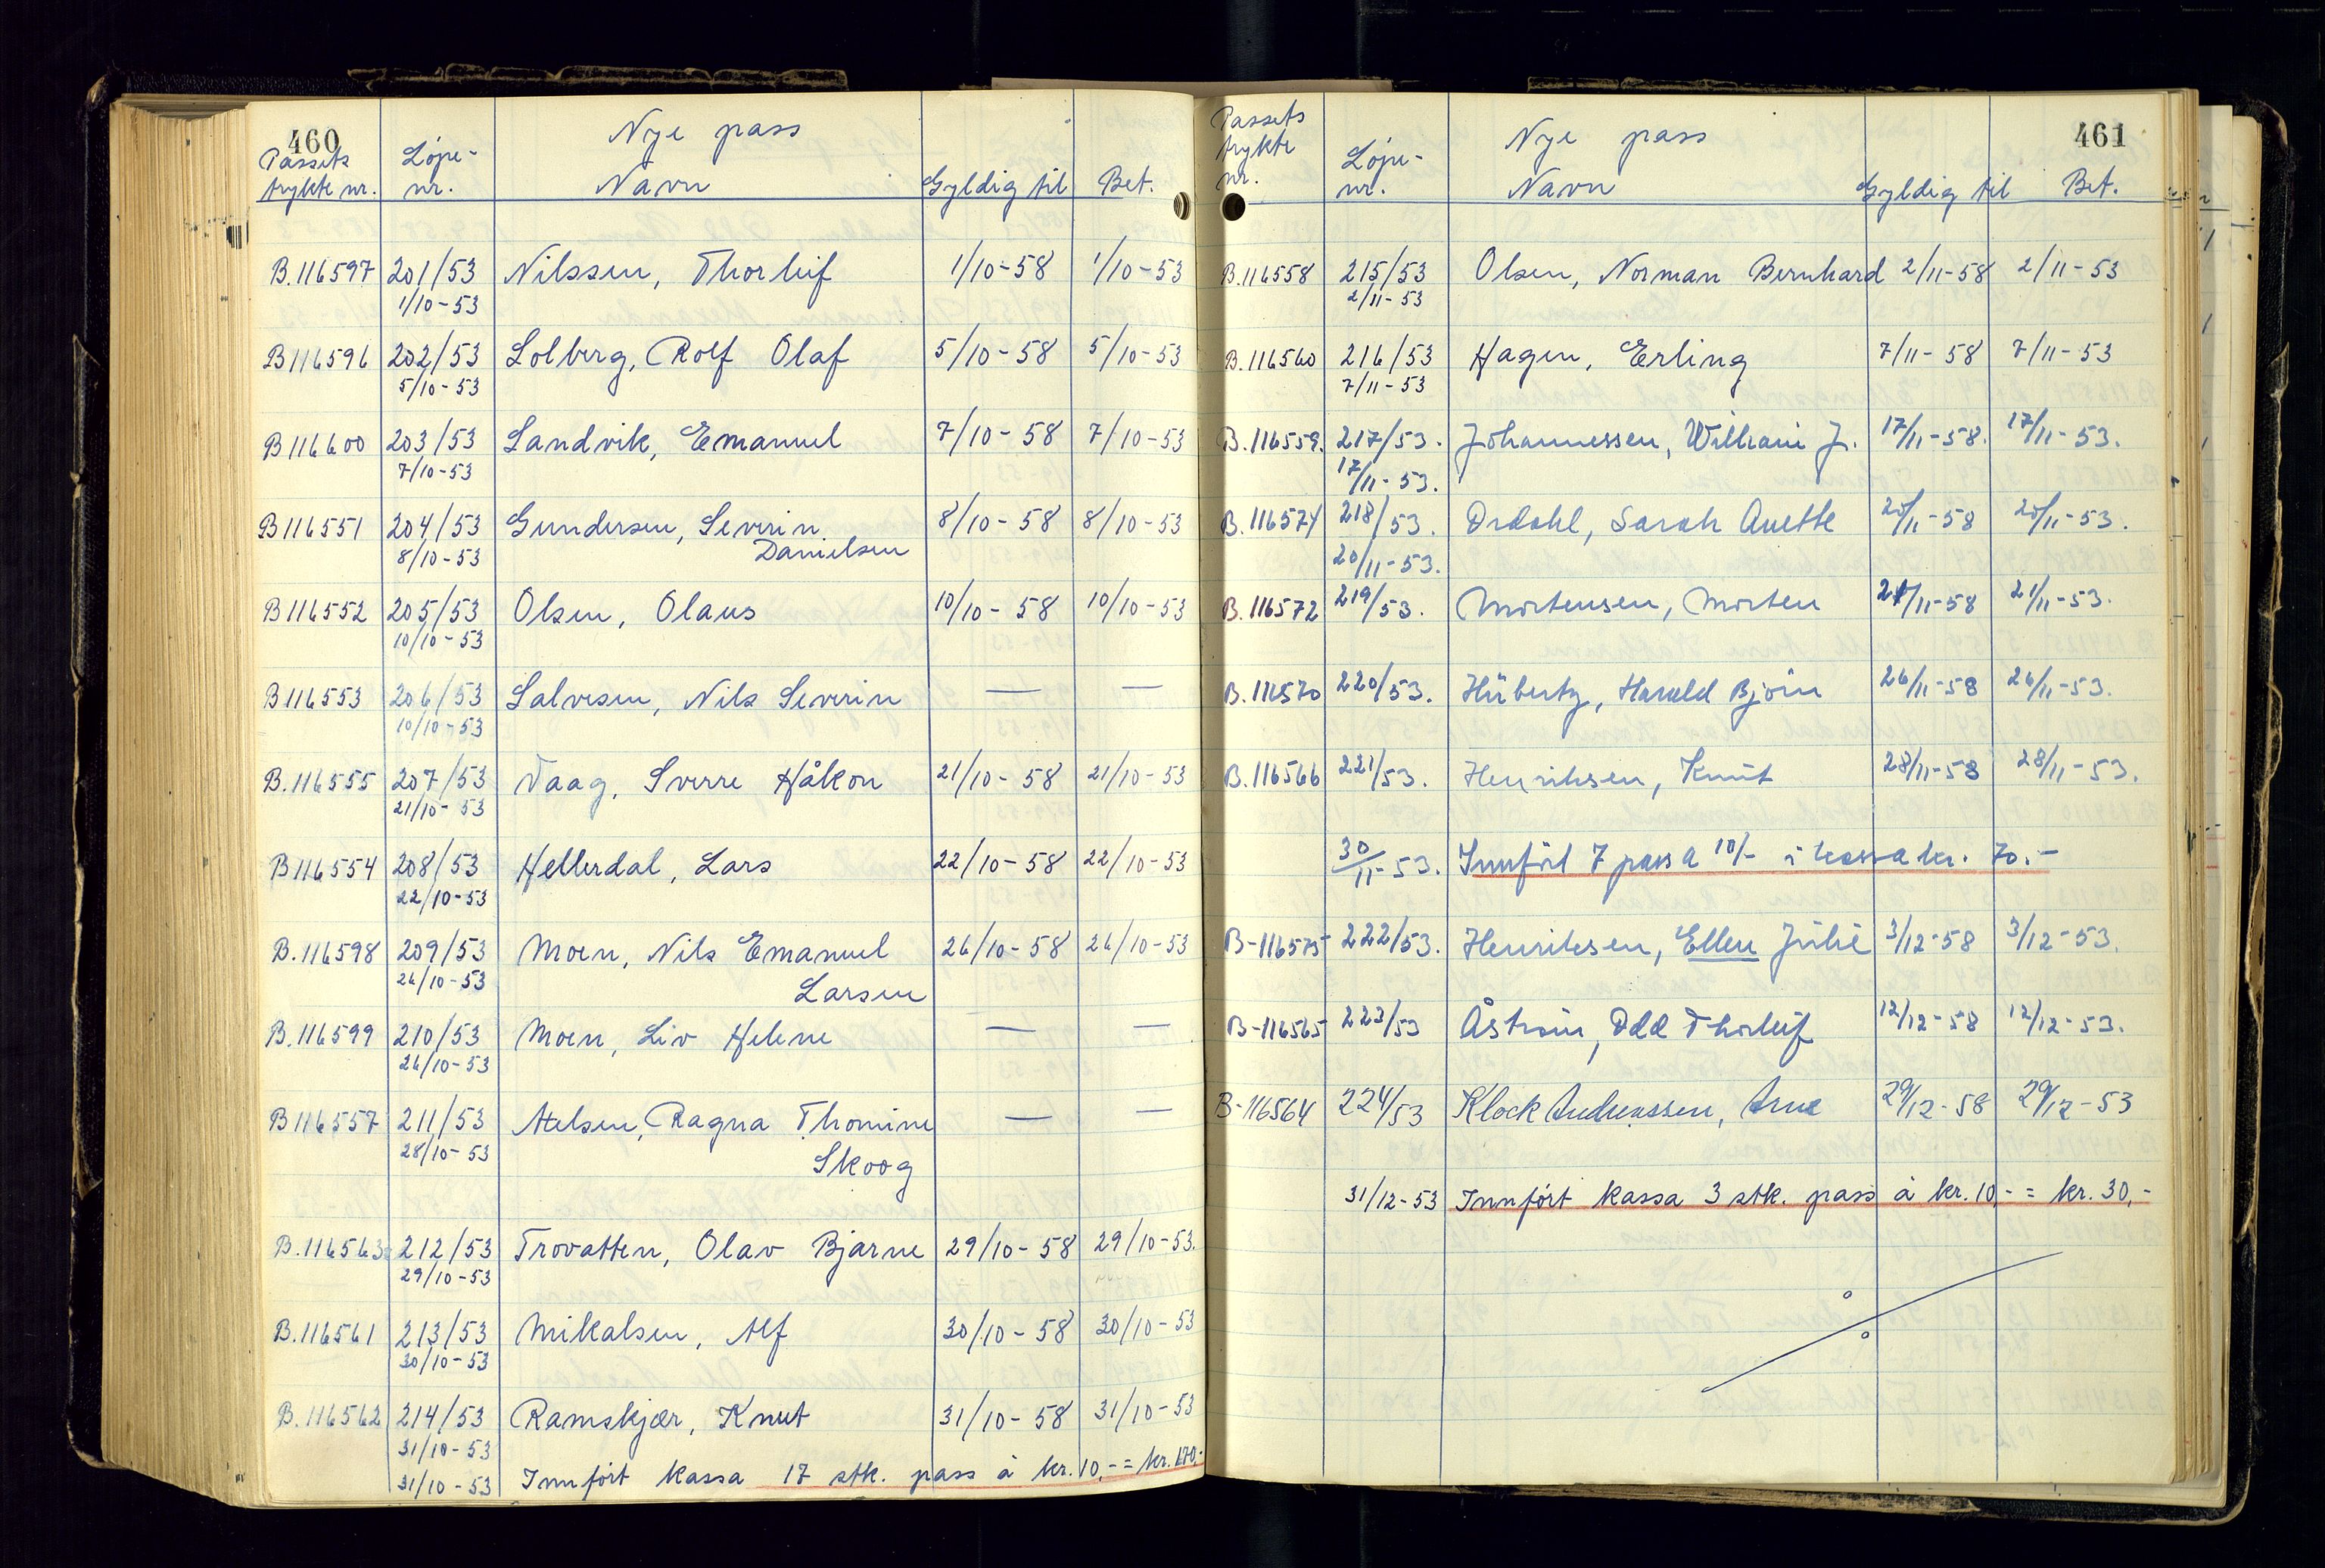 460
Nye pass
Passets
trykte nr.
Løpe-
nr.
Navn
Gyldig til
Bet.
B.116597 201/53 Nilssen, Thorleif 1/10-58 1/10-53
1/10-53
B116596 202/53 Solberg, Rolf Olaf 5/10-58 5/10-53
5/10-53
B116600 203/53 Sandvik, Emanuel 7/10-58 7/10-53
7/10-53
B116551 204/53 Gundersen, Severin 8/10-58 8/10-53
8/10-53 Danielsen
B116552 205/53 Olsen, Olaus 10/10-58 10/10-53
10/10-53
B116553 206/53 Salvesen, Nils Severin — —
10/10-53
B.116555 207/53 Vaag, Sverre Håkon 21/10-58 21/10-53
21/10-53
B116554 208/53 Hellerdal, Lars 22/10-58 22/10-53
22/10-53
B.116598 209/53 Moen, Nils Emanuel 26/10-58 26/10-53
26/10-53 Larsen
B.116599 210/53 Moen, Liv Helene — —
26/10-53
B116557 211/53 Atelsen, Ragna Thomine — —
28/10-53 Skoog
B.116563 212/53 Trovatten, Olav Bjarne 29/10-58 29/10-53.
29/10-53
B.116561 213/53 Mikalsen, Alf 30/10-58 30/10-53
30/10-53
B.116562 214/53 Ramskjær, Knut 31/10-58 31/10-53
31/10-53
31/10-53 Innført kassa 17 stk. pass à kr.10,- = kr.170,-
461
Nye pass
Passets
trykte
nr.
Løpe-
nr.
Navn
Gyldig til
Bet.
B.116558 215/53 Olsen, Norman Bernhard 2/11-58 2/11-53
2/11-53
B.116560 216/53 Hagen, Erling 7/11-58 7/11-53
7/11-53
B.116559. 217/53. Johannessen, William J. 17/11-58. 17/11-53.
17/11-53.
B.116574 218/53. Ordahl, Sarah Anette 20/11-58 20/11-53.
20/11-53.
B.116572 219/53. Mortensen, Morten 21/11-58 21/11-53.
B.116570 220/53. Hübertz, Harald Bjørn 26/11-58 26/11-53.
B.116566 221/53. Henriksen, Knut 28/11-58 28/11-53.
30/11-53. Innført 7 pass a 10/- i kassa kr. 70.-
B-116575 222/53. Henriksen, Ellen Julie 3/12-58 3/12-53.
B-116565 223/53 Åstrøm, Odd Thorleif 12/12-58 12/12-53.
B-116564 224/53 Klock Andreassen, Arne 29/12-58 29/12-53
31/12-53 Innført kassa 3 stk. pass à kr.10,- = kr.30,-